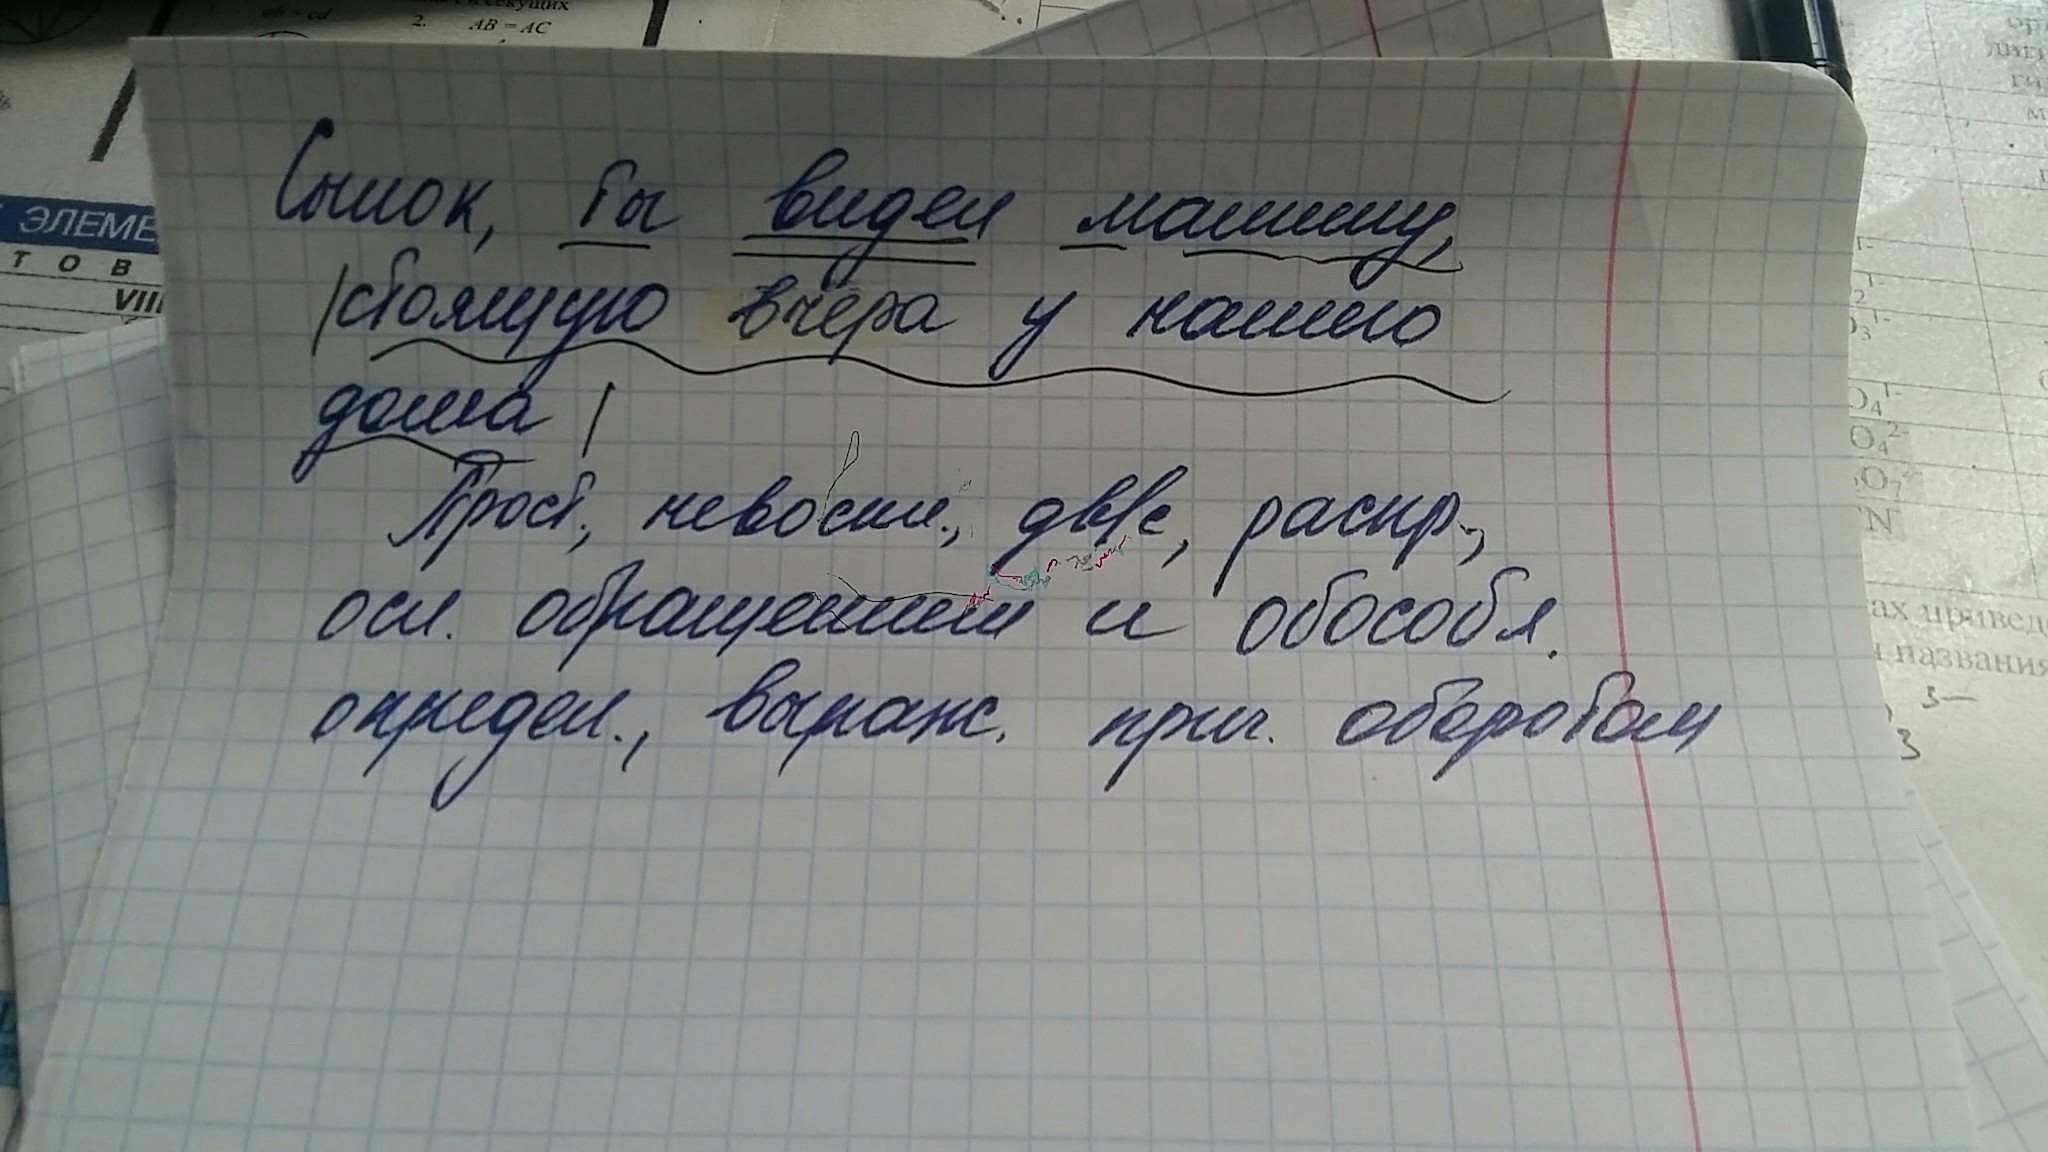 ов и секущих
ab = cd
2. AB = AC
ЭЛЕМЕ
Т О В
VIII
Сынок, ты видел машину,
|стоящую вчера у нашго
дома|
Прост., невоскл., дв/с, распр.,
осл. обращением и обособл.
определ., выраж. прич. оборотом
ах привед
названия
3-
3